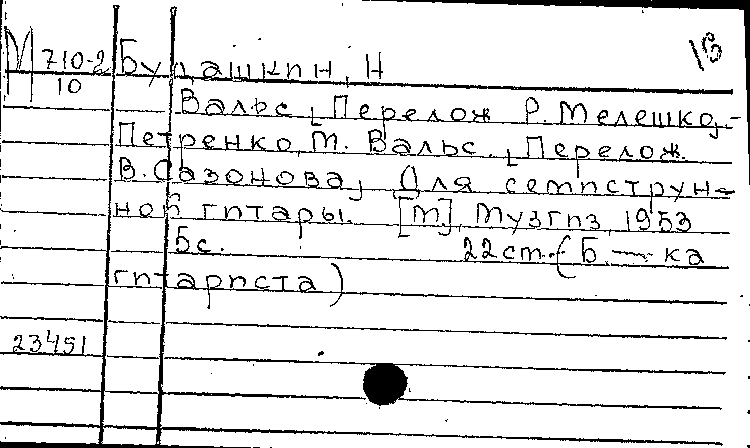 1B
М 710-2 Будашкин, Н
10
Вальс, [Перелож Р. Мелешко,] –
Петренко, М. Вальс. [Перелож.
В. Сазонова,] Для семиструн-
ной гитары. [М], Музгиз, 1953
5с. 22cm. (Б.—ка
гитариста)
23451